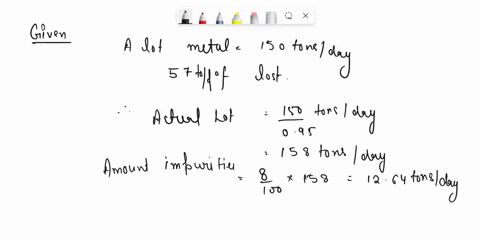 Given
A lot metal = 150 tons/day
lost.
∴ Actual Lot = 150/0.95 tons/day
= 158 tons/day
Amount impurities = 8/100 × 158 = 12.64 tons/day